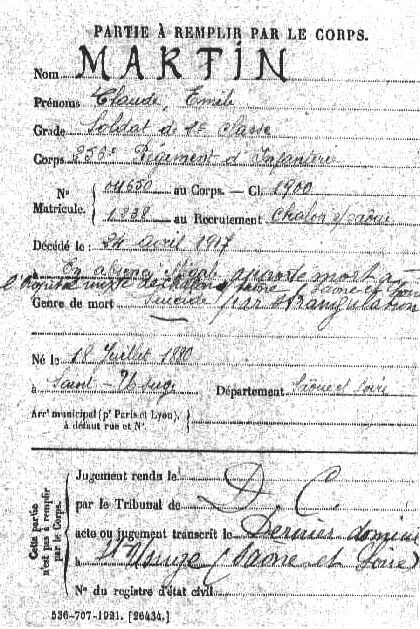 PARTIE À REMPLIR PAR LE CORPS.
Nom MARTIN
Prénoms Claude, Emile
Grade Soldat de Classe
Corps 256e Régiment d'Infanterie
N° Matricule. 04650 au Corps. — Cl. 1900
1238 au Recrutement Chalon s/Saône
Décédé le : 24 avril 1917
mort à
l'hopital mixte de Saône et Loire
Genre de mort Suicide par strangulation
Né le 18 Juillet 1880
à Saint-Usuge Département Saône et Loire
Arrt municipal (pr Paris et Lyon),
à défaut rue et N°.
Cette partie n'est pas à remplir par le Corps.
Jugement rendu le
par le Tribunal de D. C.
acte ou jugement transcrit le Dernier domicile
à St Usuge (Saône et Loire)
N° du registre d'état civil
536-707-1921. [26434.]